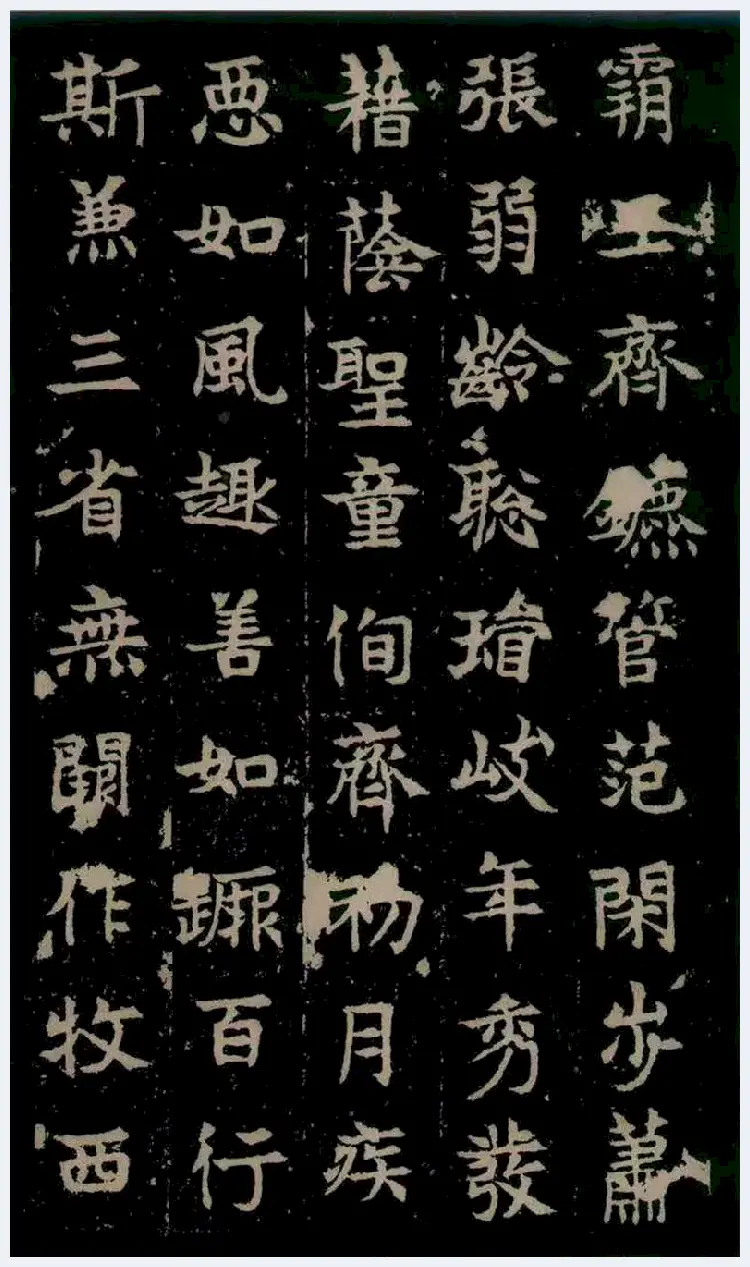 霸王齊鑣管范閑步蕭
張弱齡聡岐年秀發
藉蔭聖童侚齊初月疾
悪如風趣善如蹶百行
斯兼三省無闕作牧西